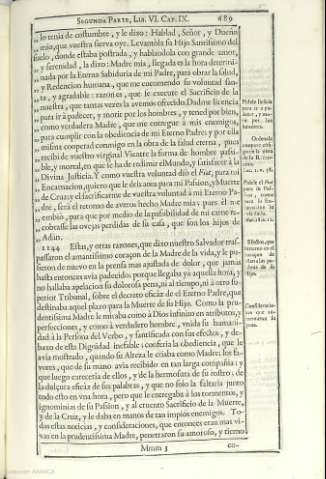 SEGUNDA PARTE, LIB. VI. CAP. IX. 689
,, lo tenia de costumbre, y le dixo: Hablad, Señor, y Dueño
,, mio, que vuestra sierva oye. Levantóla su Hijo Santissimo del
,, suelo, donde estaba postrada, y hablandola con grande amor,
,, y serenidad, la dixo: Madre mia, llegada es la hora determi-
,, nada por la Eterna Sabiduria de mi Padre, para obrar la salud,
,, y Redencion humana, que me encomendó su voluntad san-
,, ta, y agradable: razon es, que se execute el Sacrificio de la
,, nuestra, que tantas vezes la avemos ofrecido. Dadme licencia
,, para ir à padecer, y morir por los hombres, y tened por bien,
,, como verdadera Madre, que me entregue à mis enemigos,
,, para cumplir con la obediencia de mi Eterno Padre; y por ella
,, misma cooperad conmigo en la obra de la salud eterna, pues
,, recibí de vuestro virginal Vientre la forma de hombre passi-
,, ble, y mortal, en que se ha de redimir el Mundo, y satisfacer à la
,, Divina Justicia. Y como vuestra voluntad dió el Fiat, para mi
,, Encarnacion, quiero que le deis aora para mi Passion, y Muerte
,, de Cruz; y el sacrificarme de vuestra voluntad à mi Eterno Pa-
,, dre, será el retorno de averos hecho Madre mia; pues él me
,, embió, para que por medio de la passibilidad de mi carne re-
,, cobrasse las ovejas perdidas de su casa, que son los hijos de
,, Adàn.
1144 Estas, y otras razones, que dixo nuestro Salvador tras-
passaron el amantissimo coraçon de la Madre de la vida, y le pu-
sieron de nuevo en la prensa mas ajustada de dolor, que jamàs
hasta entonces avia padecido: porque llegaba yà aquella hora, y
no hallaba apelacion su dolorosa pena, ni al tiempo, ni à otro su-
perior Tribunal, sobre el decreto eficáz de el Eterno Padre, que
destinaba aquel plazo para la Muerte de su Hijo. Como la pru-
dentissima Madre le miraba como à Dios infinito en atributos, y
perfecciones, y como à verdadero hombre, vnida su humani-
dad à la Persona del Verbo, y santificada con sus efectos, y de-
baxo de esta Dignidad inefable: conferia la obediencia, que le
avia mostrado, quando su Alteza le criaba como Madre; los fa-
vores, que de su mano avia recibido en tan larga compañia; y
que luego careceria de ellos, y de la hermosura de su rostro; de
la dulçura eficáz de sus palabras, y que no solo la faltaria junto
todo esto en vna hora, pero que le entregaba à los tormentos, y
ignominias de su Passion, y al cruento Sacrificio de la Muerte,
y de la Cruz, y le daba en manos de tan impios enemigos. To-
das estas noticias, y consideraciones, que entonces eran mas vi-
vas en la prudentissima Madre, penetraron su amoroso, y tierno
co-